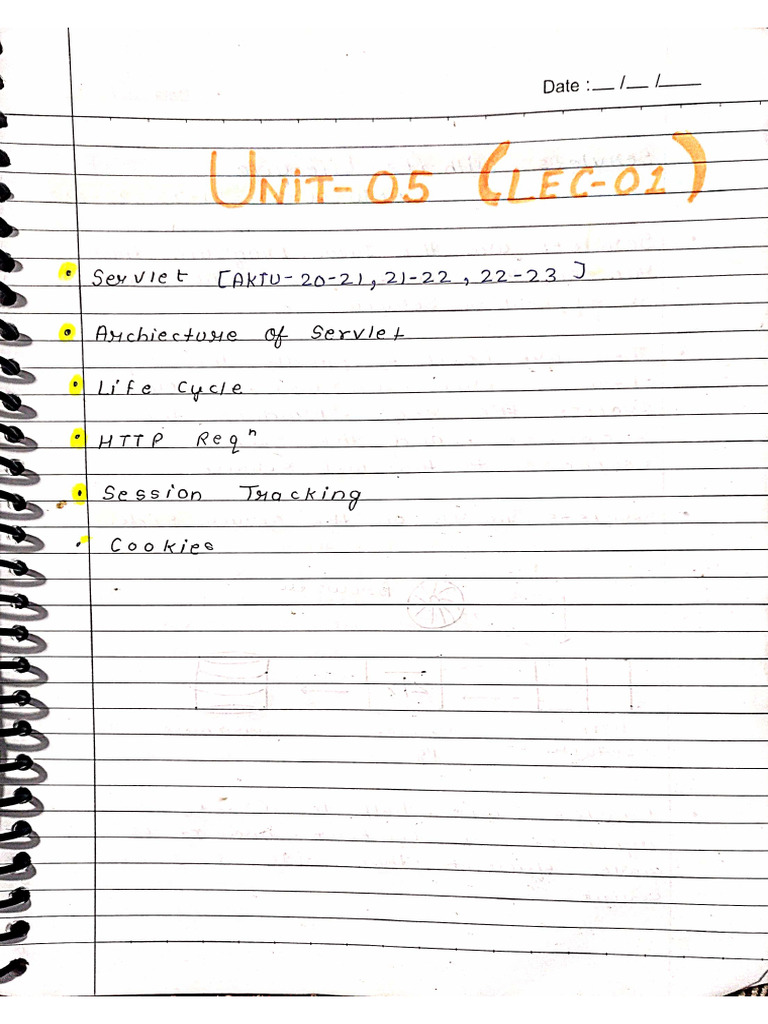 Date : __ / __ / ____
UNIT-05 (LEC-01)
• Servlet [AKTU-20-21, 21-22, 22-23]
• Archiecture of Servlet
• Life Cycle
• HTTP Reqⁿ
• Session Tracking
• Cookies